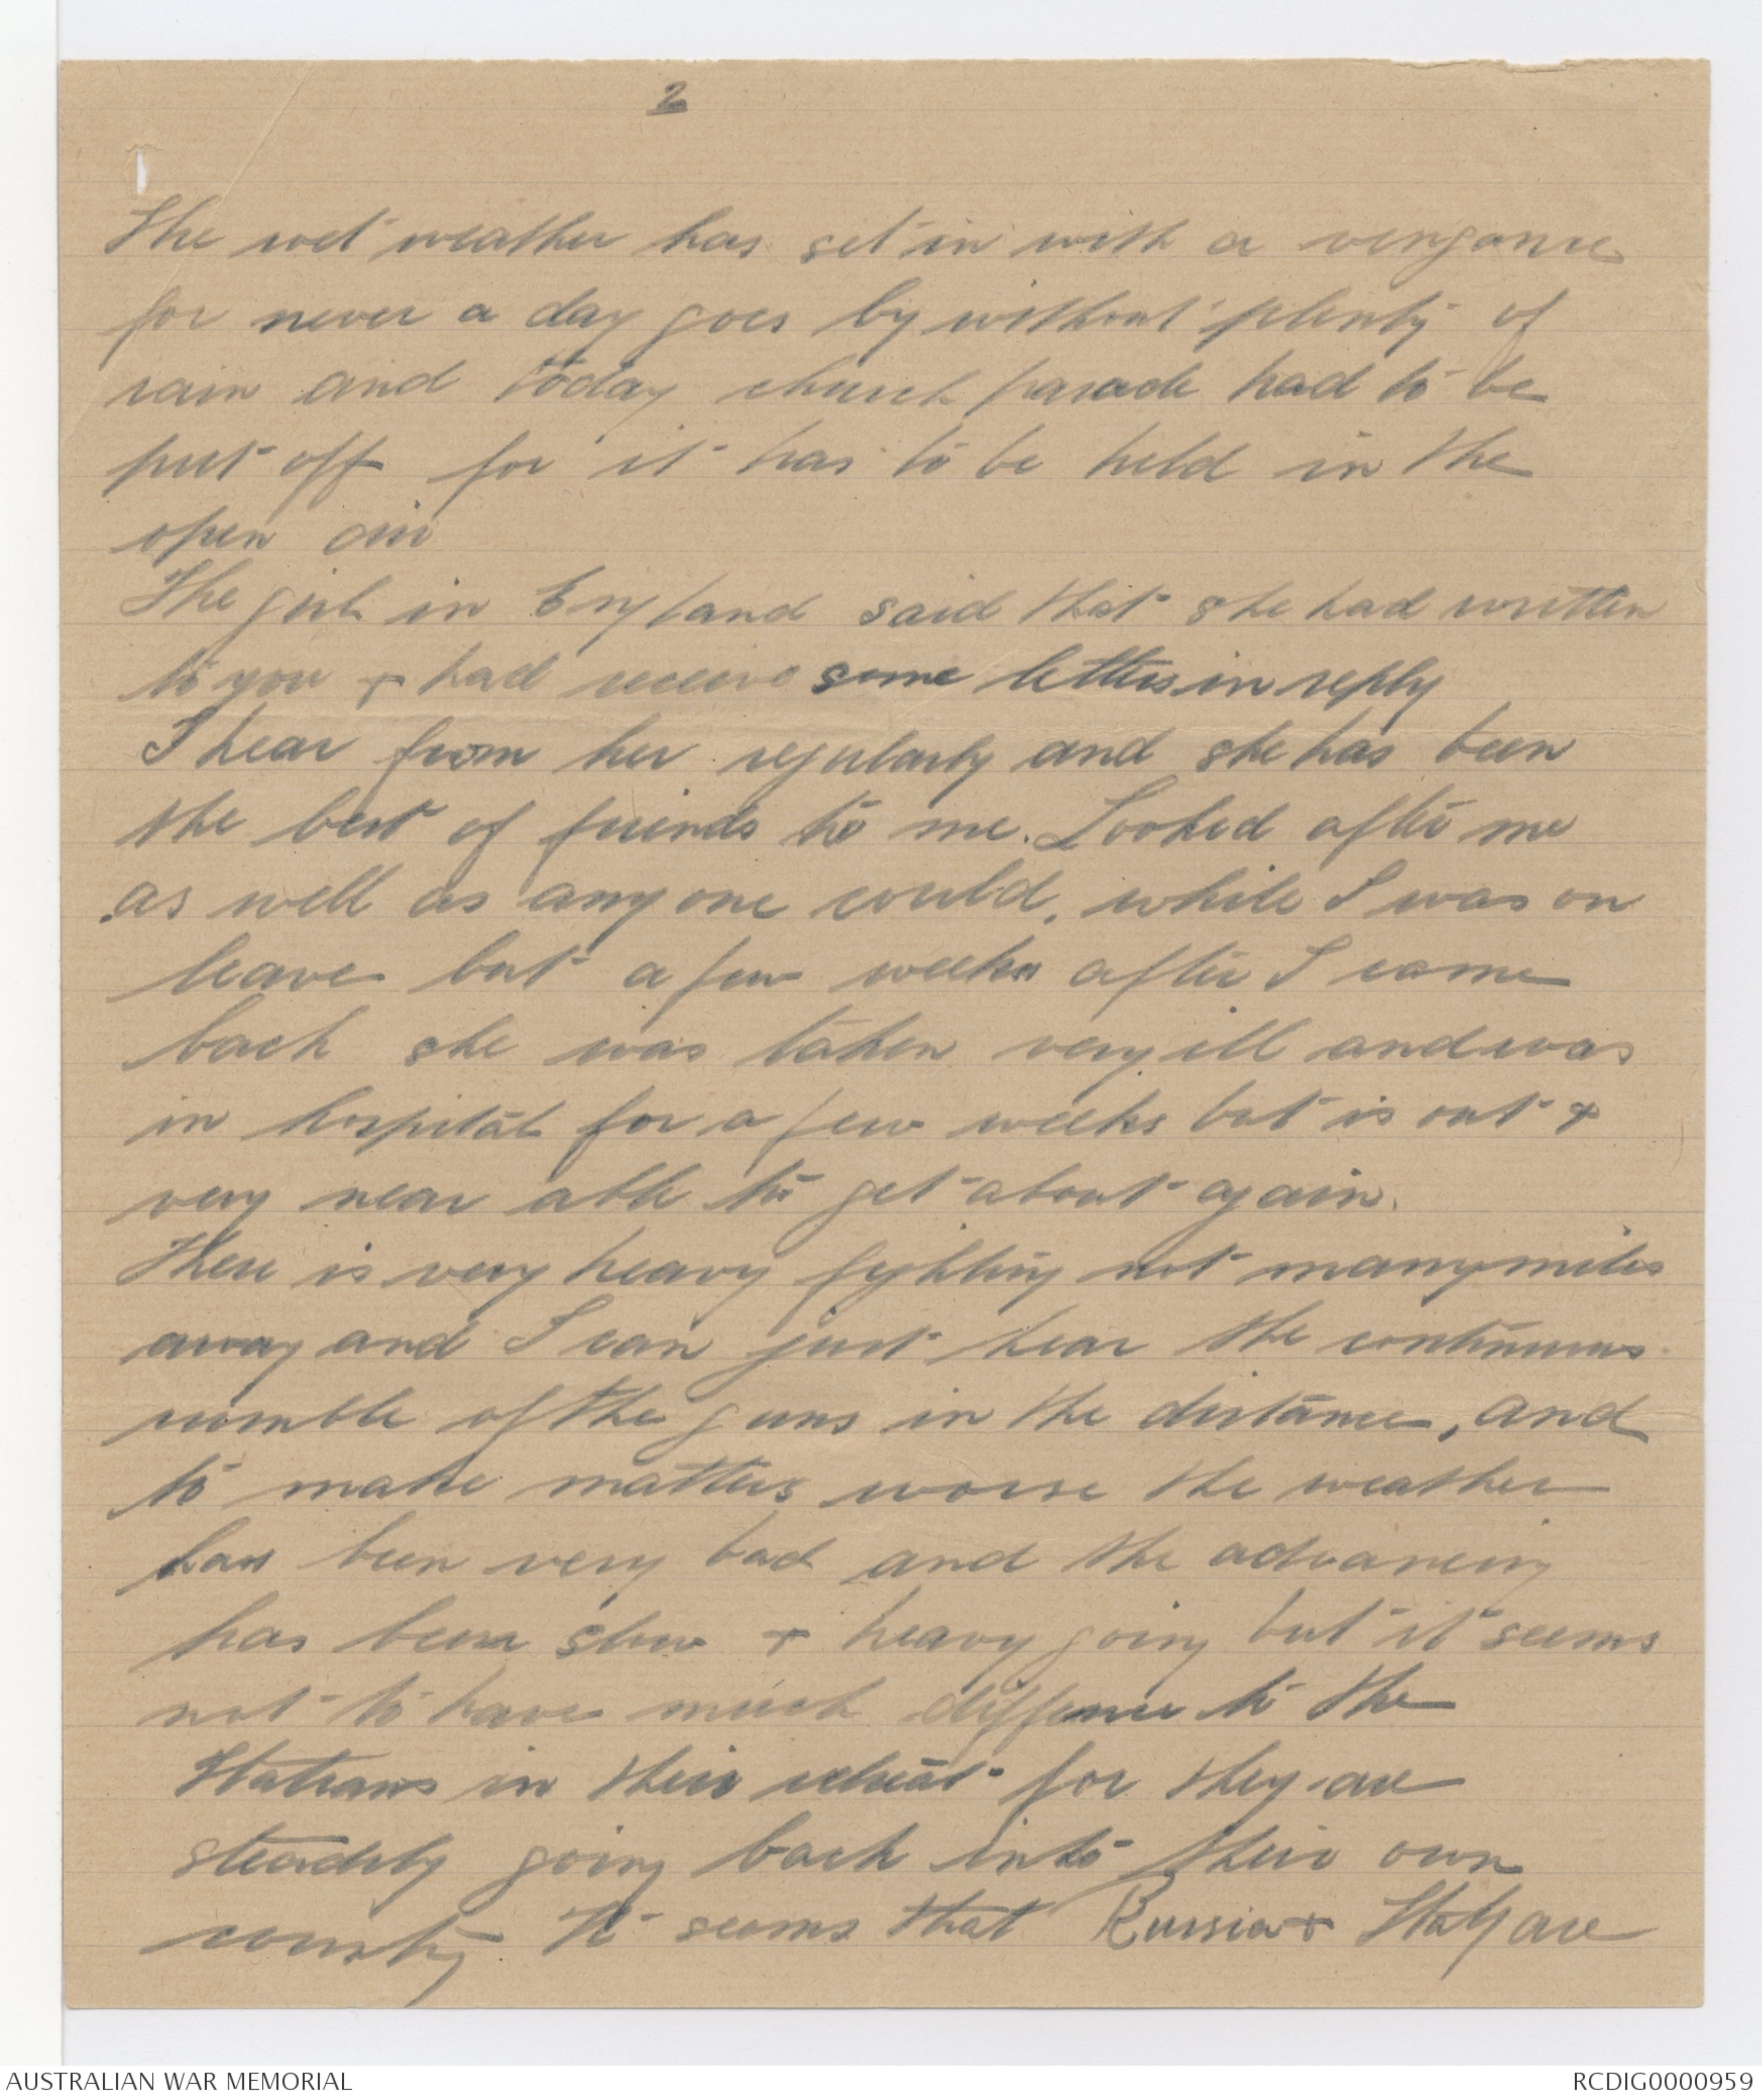 2
The wet weather has set in with a vengance
for never a day goes by without plenty of
rain and today church parade had to be
put off for it has to be held in the
open air
The girl in England said that she had written
to you & had receive some letters in reply
I hear from her regularly and she has been
the best of friends to me. Looked after me
as well as any one could, while I was on
leave but a few weeks after I came
back she was taken very ill and was
in hospital for a few weeks but is out &
very near able to get about again.
There is very heavy fighting not many miles
away and I can just hear the continuous
rumble of the guns in the distance, and
to make matters worse the weather
has been very bad and the advancing
has been slow & heavy going but it seems
not to have much diffence to the
Italians in their retreat for they are
steadily going back into their own
country. It seems that Russia & Italy are
AUSTRALIAN WAR MEMORIAL
RCDIG0000959